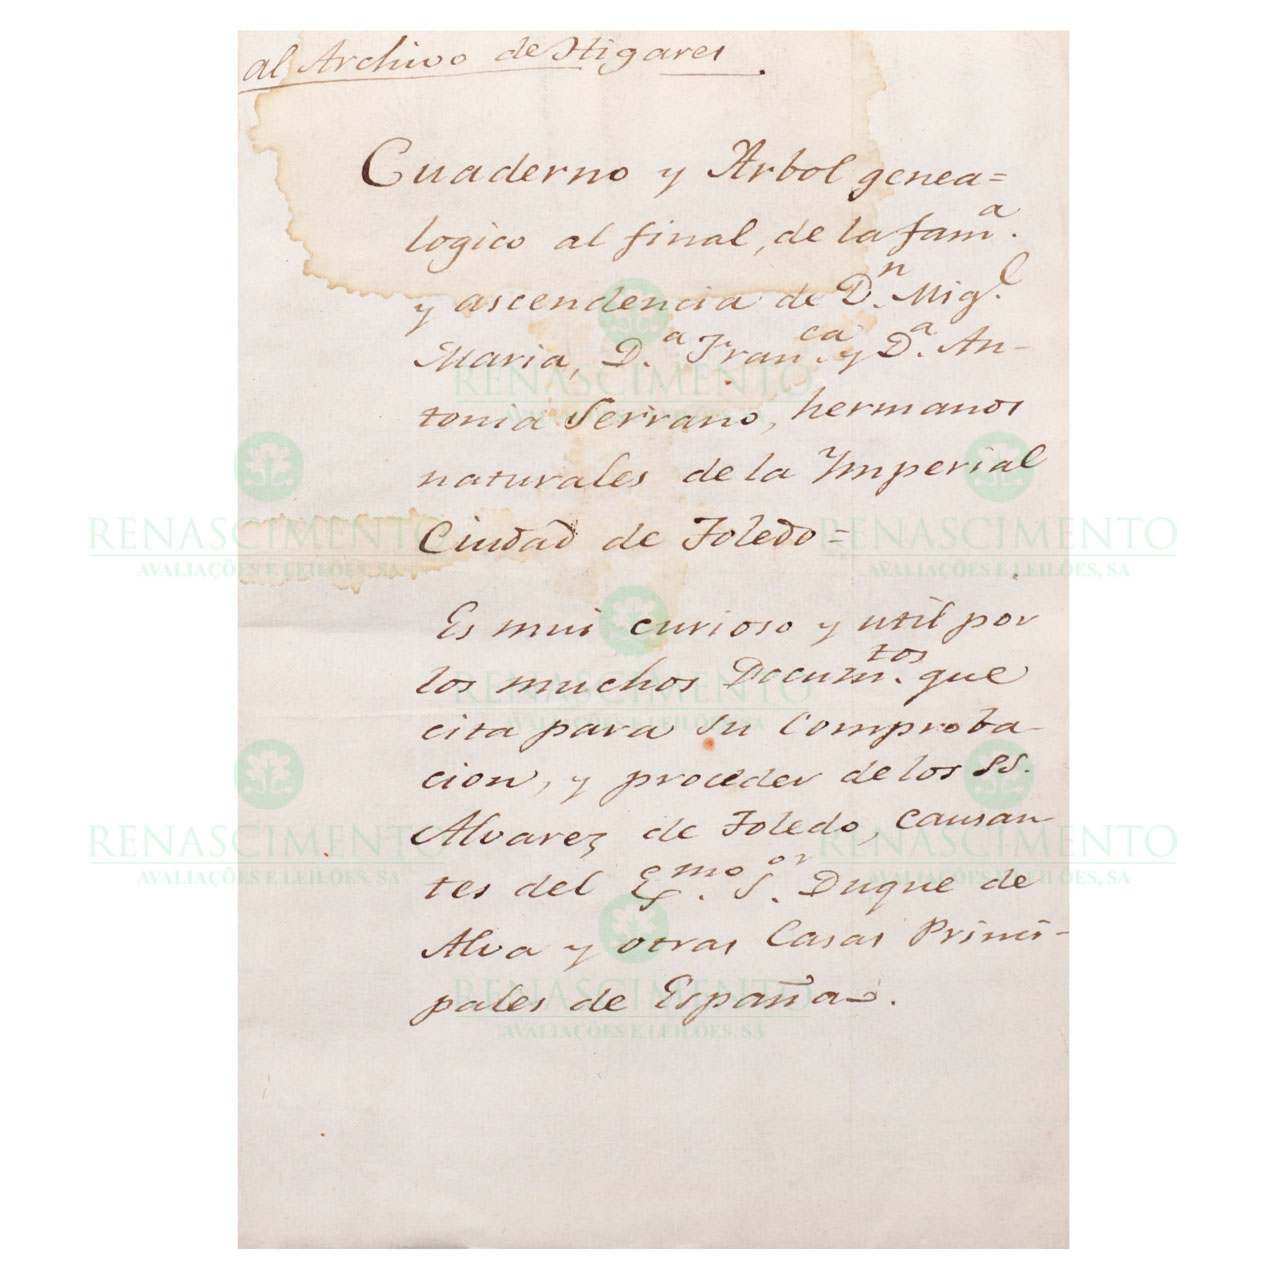 al Archivo de Higares.
Cuaderno y Arbol genea=
logico al final, de la fam.ª
y ascendencia de D.n Mig.l
Maria, D.ª Fran.ca y D.ª An-
tonia Serrano, hermanos
naturales de la Ymperial
Ciudad de Toledo=
Es mui curioso y util por
los muchos Docum.tos que
cita para su Comproba-
cion, y proceder de los SS.
Alvarez de Toledo, causan-
tes del Exmo. S.or Duque de
Alva y otras Casas Princi-
pales de España.
RENASCIMENTO
AVALIAÇÕES E LEILÕES, SA
RENASCIMENTO
AVALIAÇÕES E LEILÕES, SA
RENASCIMENTO
AVALIAÇÕES E LEILÕES, SA
RENASCIMENTO
AVALIAÇÕES E LEILÕES, SA
RENASCIMENTO
AVALIAÇÕES E LEILÕES, SA
RENASCIMENTO
AVALIAÇÕES E LEILÕES, SA
RENASCIMENTO
AVALIAÇÕES E LEILÕES, SA